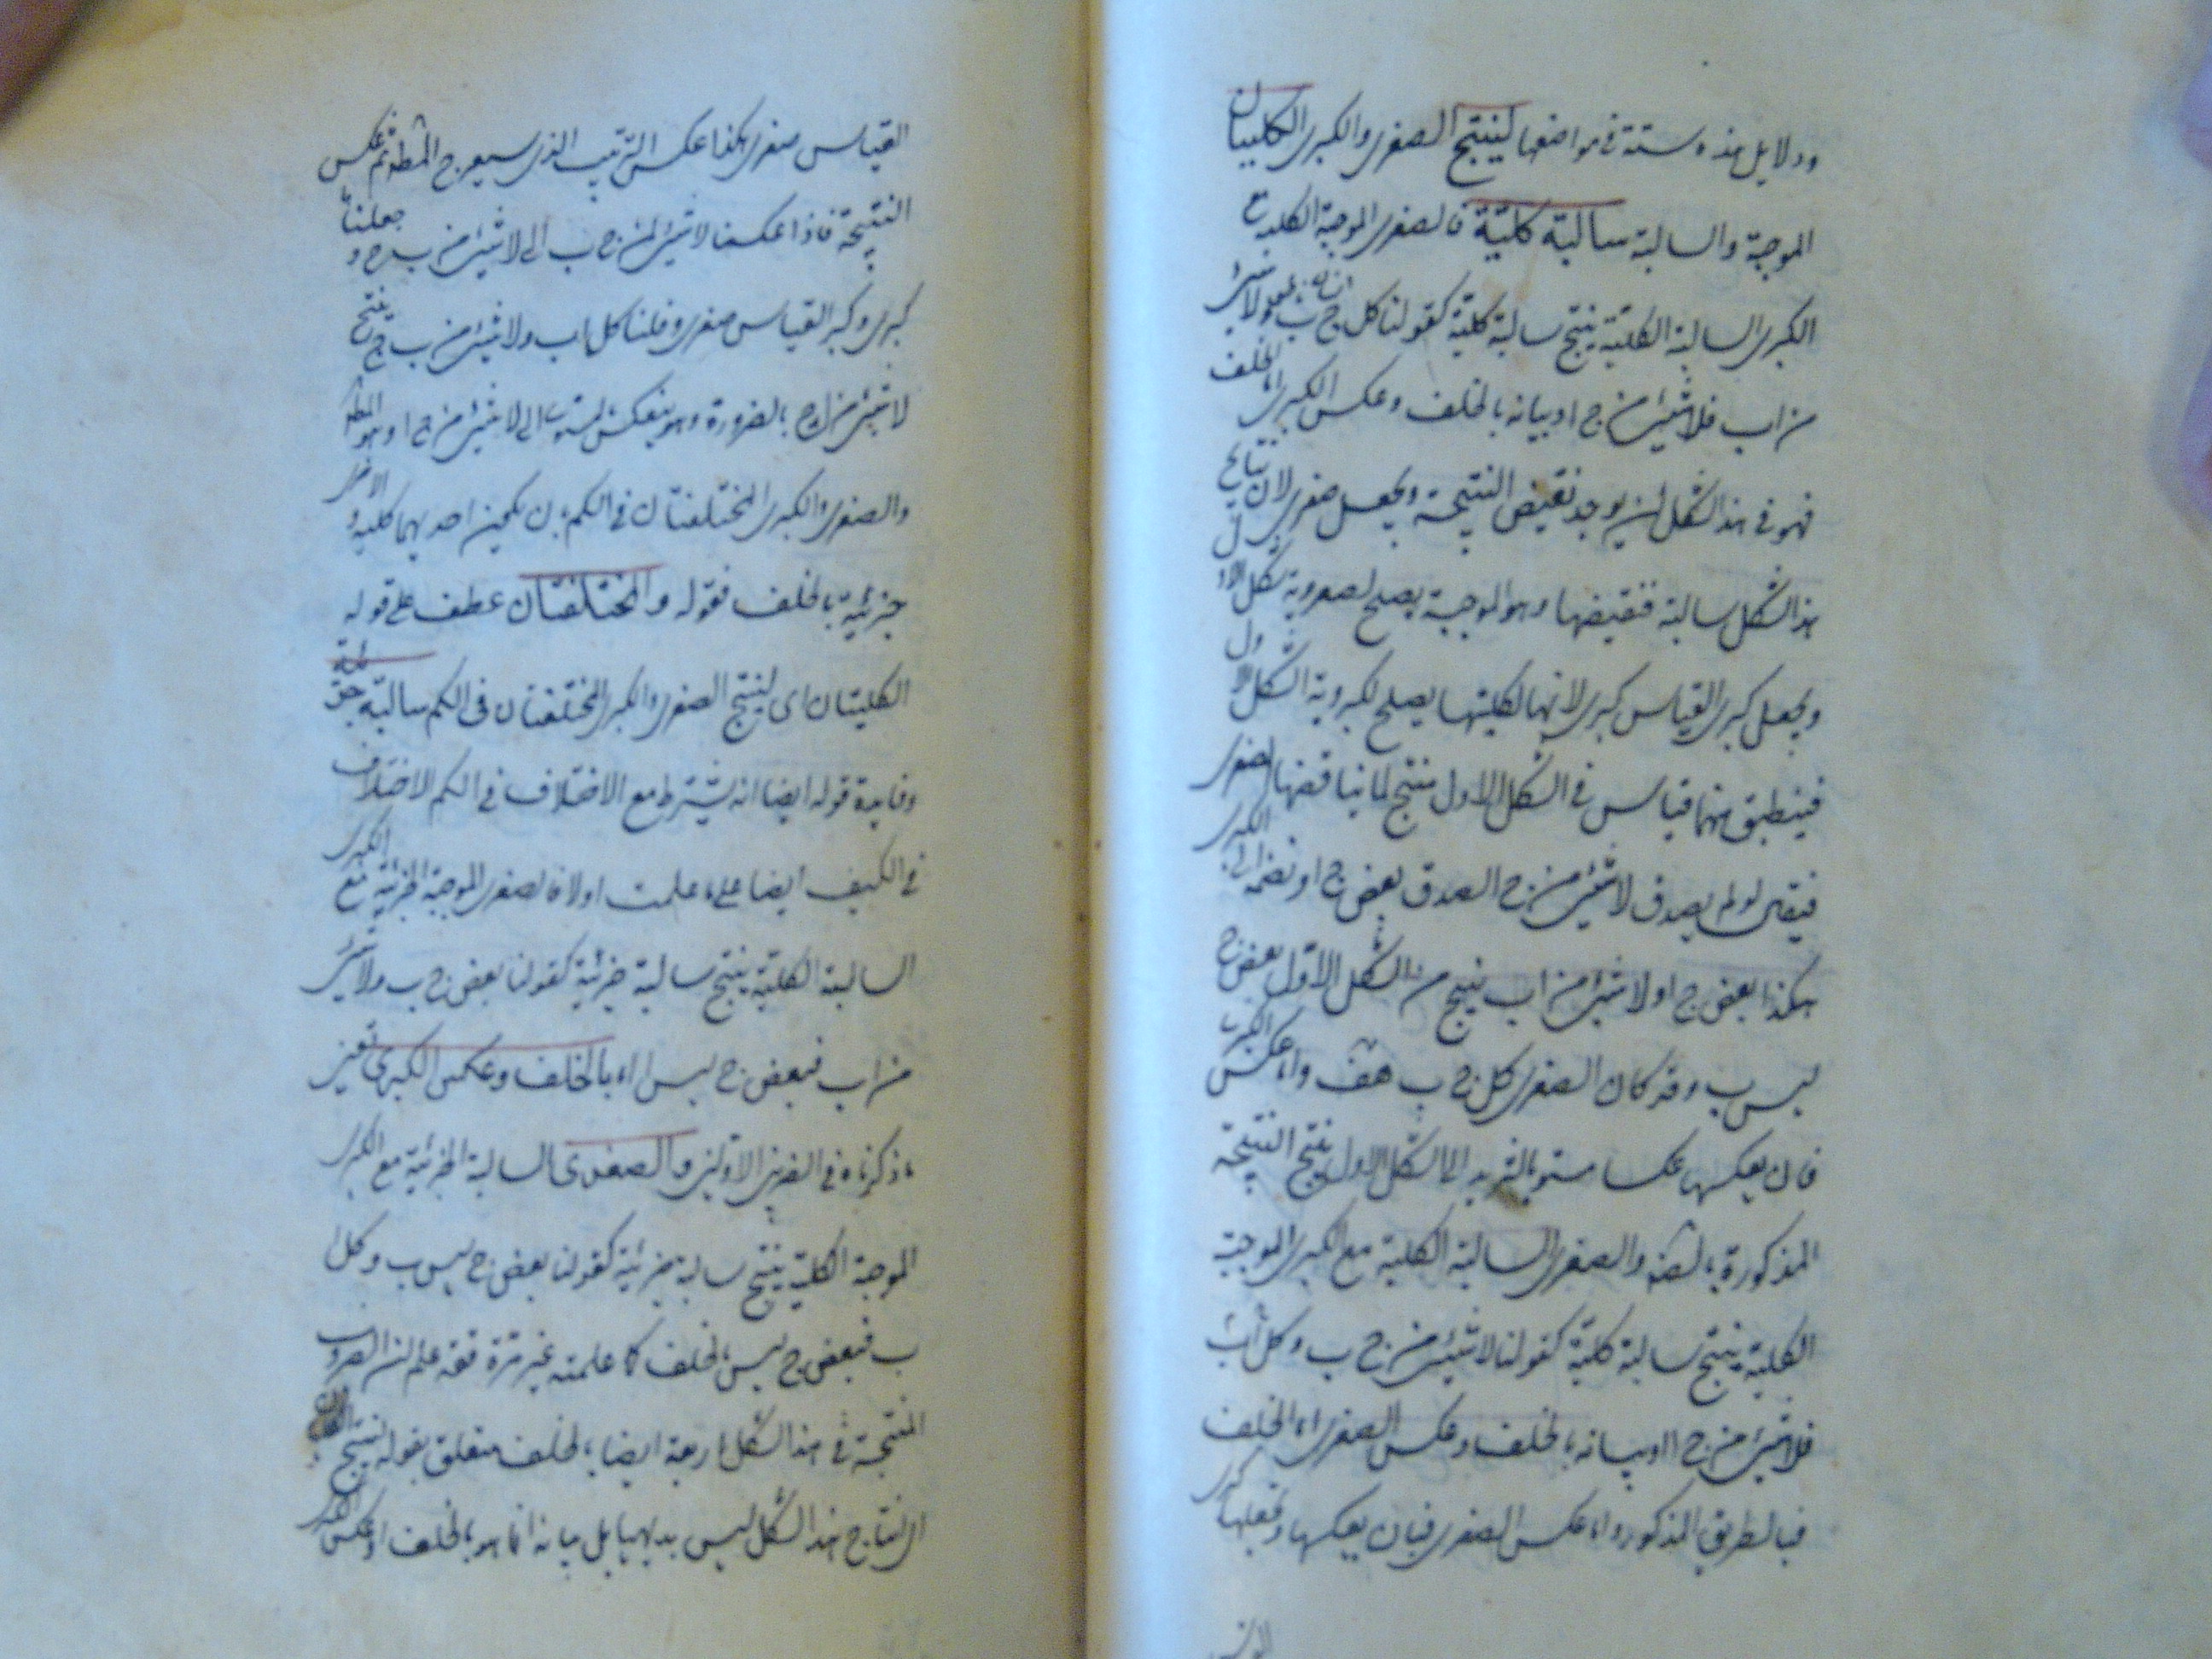 ودلايل هذه ستة في مواضعها لينتج الصغرى والكبرى الكليتان
الموجبة والسالبة سالبة كلية فالصغرى الموجبة الكلية مع
الكبرى السالبة الكلية ينتج سالبة كلية كقولنا كل ج ب ولا شئ
من اب فلا شئ من ج ا وبيانه بالخلف وعكس الكبرى اما الخلف
فهو في هذا الشكل ان يوجد نقيض النتيجة ويجعل صغرى لان نتايج
هذا الشكل سالبة فنقيضها وهو الموجبة يصلح لصغروية شكل الاول
ويجعل كبرى القياس كبرى لانها لكليتها يصلح لكبروية الشكل الاول
فينطبق منهما قياس في الشكل الاول منتج لما يناقضها الصغرى
فيقال لو لم يصدق لا شئ من ج ا لصدق بعض ج ا ونضمه الى الكبرى
هكذا بعض ج ا ولا شئ من اب ينتج من الشكل الاول بعض ج
ليس ب وقد كان الصغرى كل ج ب هف واما عكس الكبرى
فان يعكسها عكسا مستويا الى الشكل الاول ينتج النتيجة
المذكورة والصغرى السالبة الكلية مع الكبرى الموجبة
الكلية ينتج سالبة كلية كقولنا لا شئ من ج ب وكل اب
فلا شئ من ج ا وبيانه بالخلف وعكس الصغرى اما الخلف
فبالطريق المذكور واما عكس الصغرى فبان يعكسها وتجعلها كبرى
القياس صغرى هكذا عكس الترتيب الذي سيعرج المط ثم عكس
النتيجة فاذا عكسنا لا شئ من ج ب الى لا شئ من ب ج و جعلناه
كبرى وكبرى القياس صغرى وقلنا كل اب ولا شئ من ب ج ينتج
لا شئ من ا ج بالضرورة وهو ينعكس الى لا شئ من ج ا وهو المط
والصغرى والكبرى المختلفتان في الكم بان يكون احديهما كلية و الاخرى
جزئية بالخلف فقوله والمختلفتان عطف على قوله
الكليتان اى لينتج الصغرى والكبرى المختلفتان في الكم سالبة جزئية
وفايدة قوله ايضا انه يشترط مع الاختلاف في الكم الاختلاف
في الكيف ايضا على ما علمت اولا فالصغرى الموجبة الجزئية مع الكبرى
السالبة الكلية ينتج سالبة جزئية كقولنا بعض ج ب ولا شئ
من اب فبعض ج ليس ا اما بالخلف وعكس الكبرى بعين
ما ذكرناه في الضربين الاولين والصغرى السالبة الجزئية مع الكبرى
الموجبة الكلية ينتج سالبة جزئية كقولنا بعض ج ليس ب وكل ا
ب فبعض ج ليس بالخلف كما علمته غير مرة فقد علم ان الضروب
المنتجة في هذا الشكل اربعة ايضا بالخلف متعلق بقوله لينتج
اى انتاج هذا الشكل ليس بديهيا بل بيانه انما هو بالخلف او عكس الكبرى